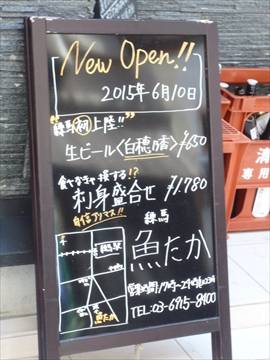 New Open!!
2015年6月10日
"練馬初上陸!!"
生ビール〈白穂乃香〉¥650
食べなきゃ損する!?
刺身盛合せ ¥1,780
自信アリマス!!
練馬
魚たか
魚たか
TEL:03-6915-8400
専用